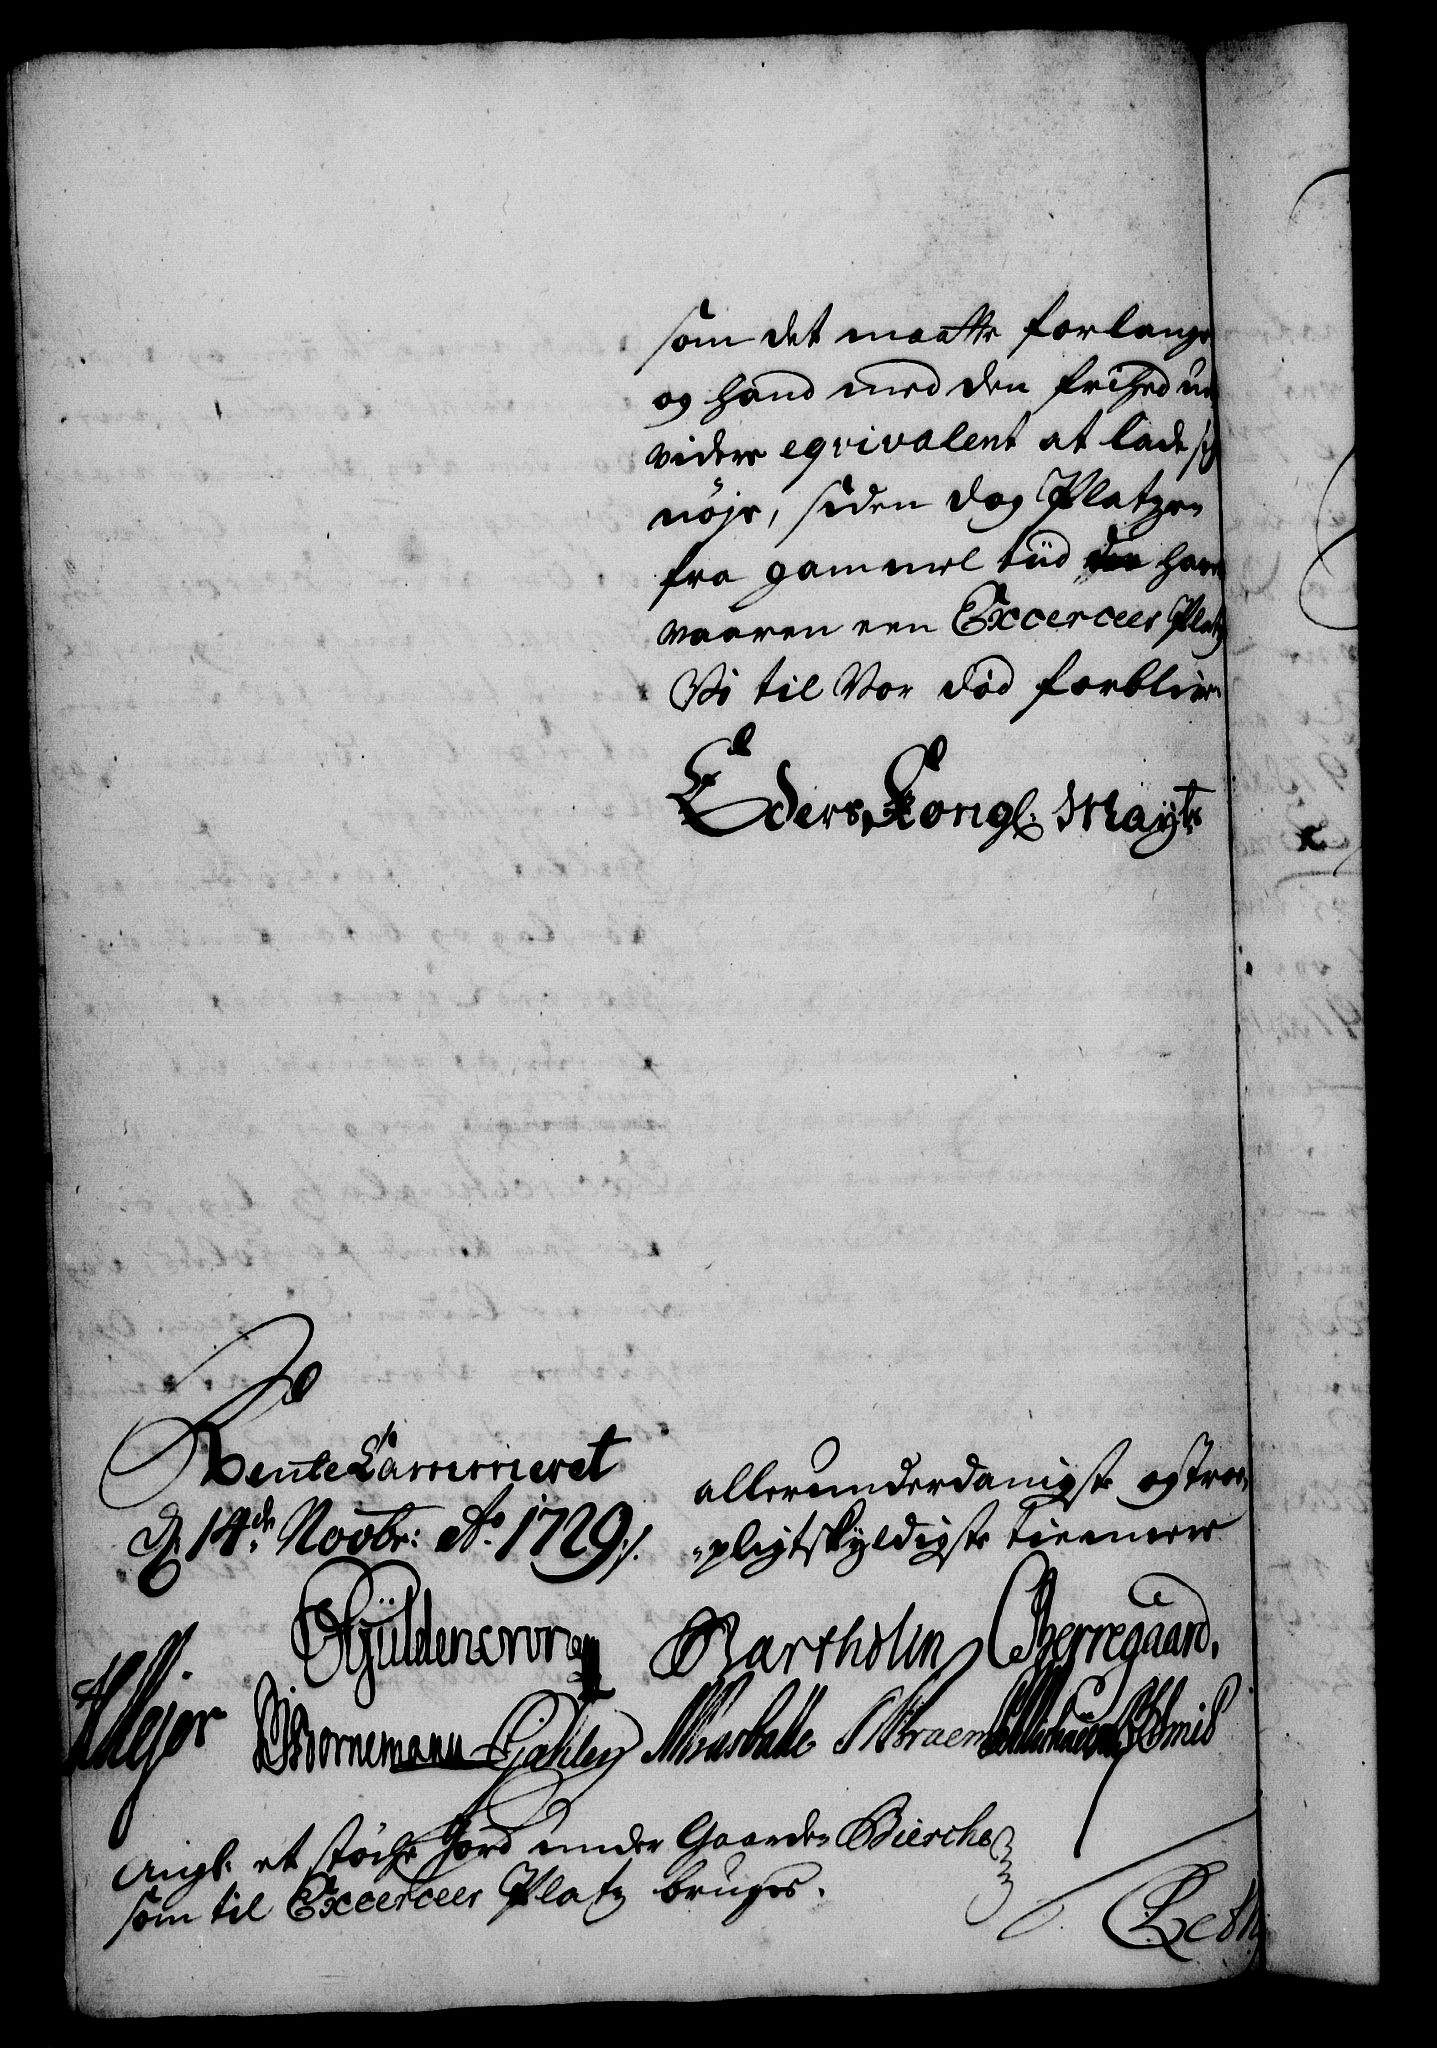 som det maatte forlange
og hand med den frihed ud
videre eqvivalent at lade sig
nöje, siden dog Platzen
fra gammel tiid har
vaaren een Excercees Platz
Vi til Vor död forblive
Eders Kongl. Mayts
RenteCammeret
d. 14de Novbr: Ao. 1729 ./.
allerunderdanigste og troe
-pligtskyldigste Tienere
Güldencrone Bartholin Berregaard.
Bornemann
Angl: et støche Jord under Gaarden Biersche
som til Excercees Platz bruges.